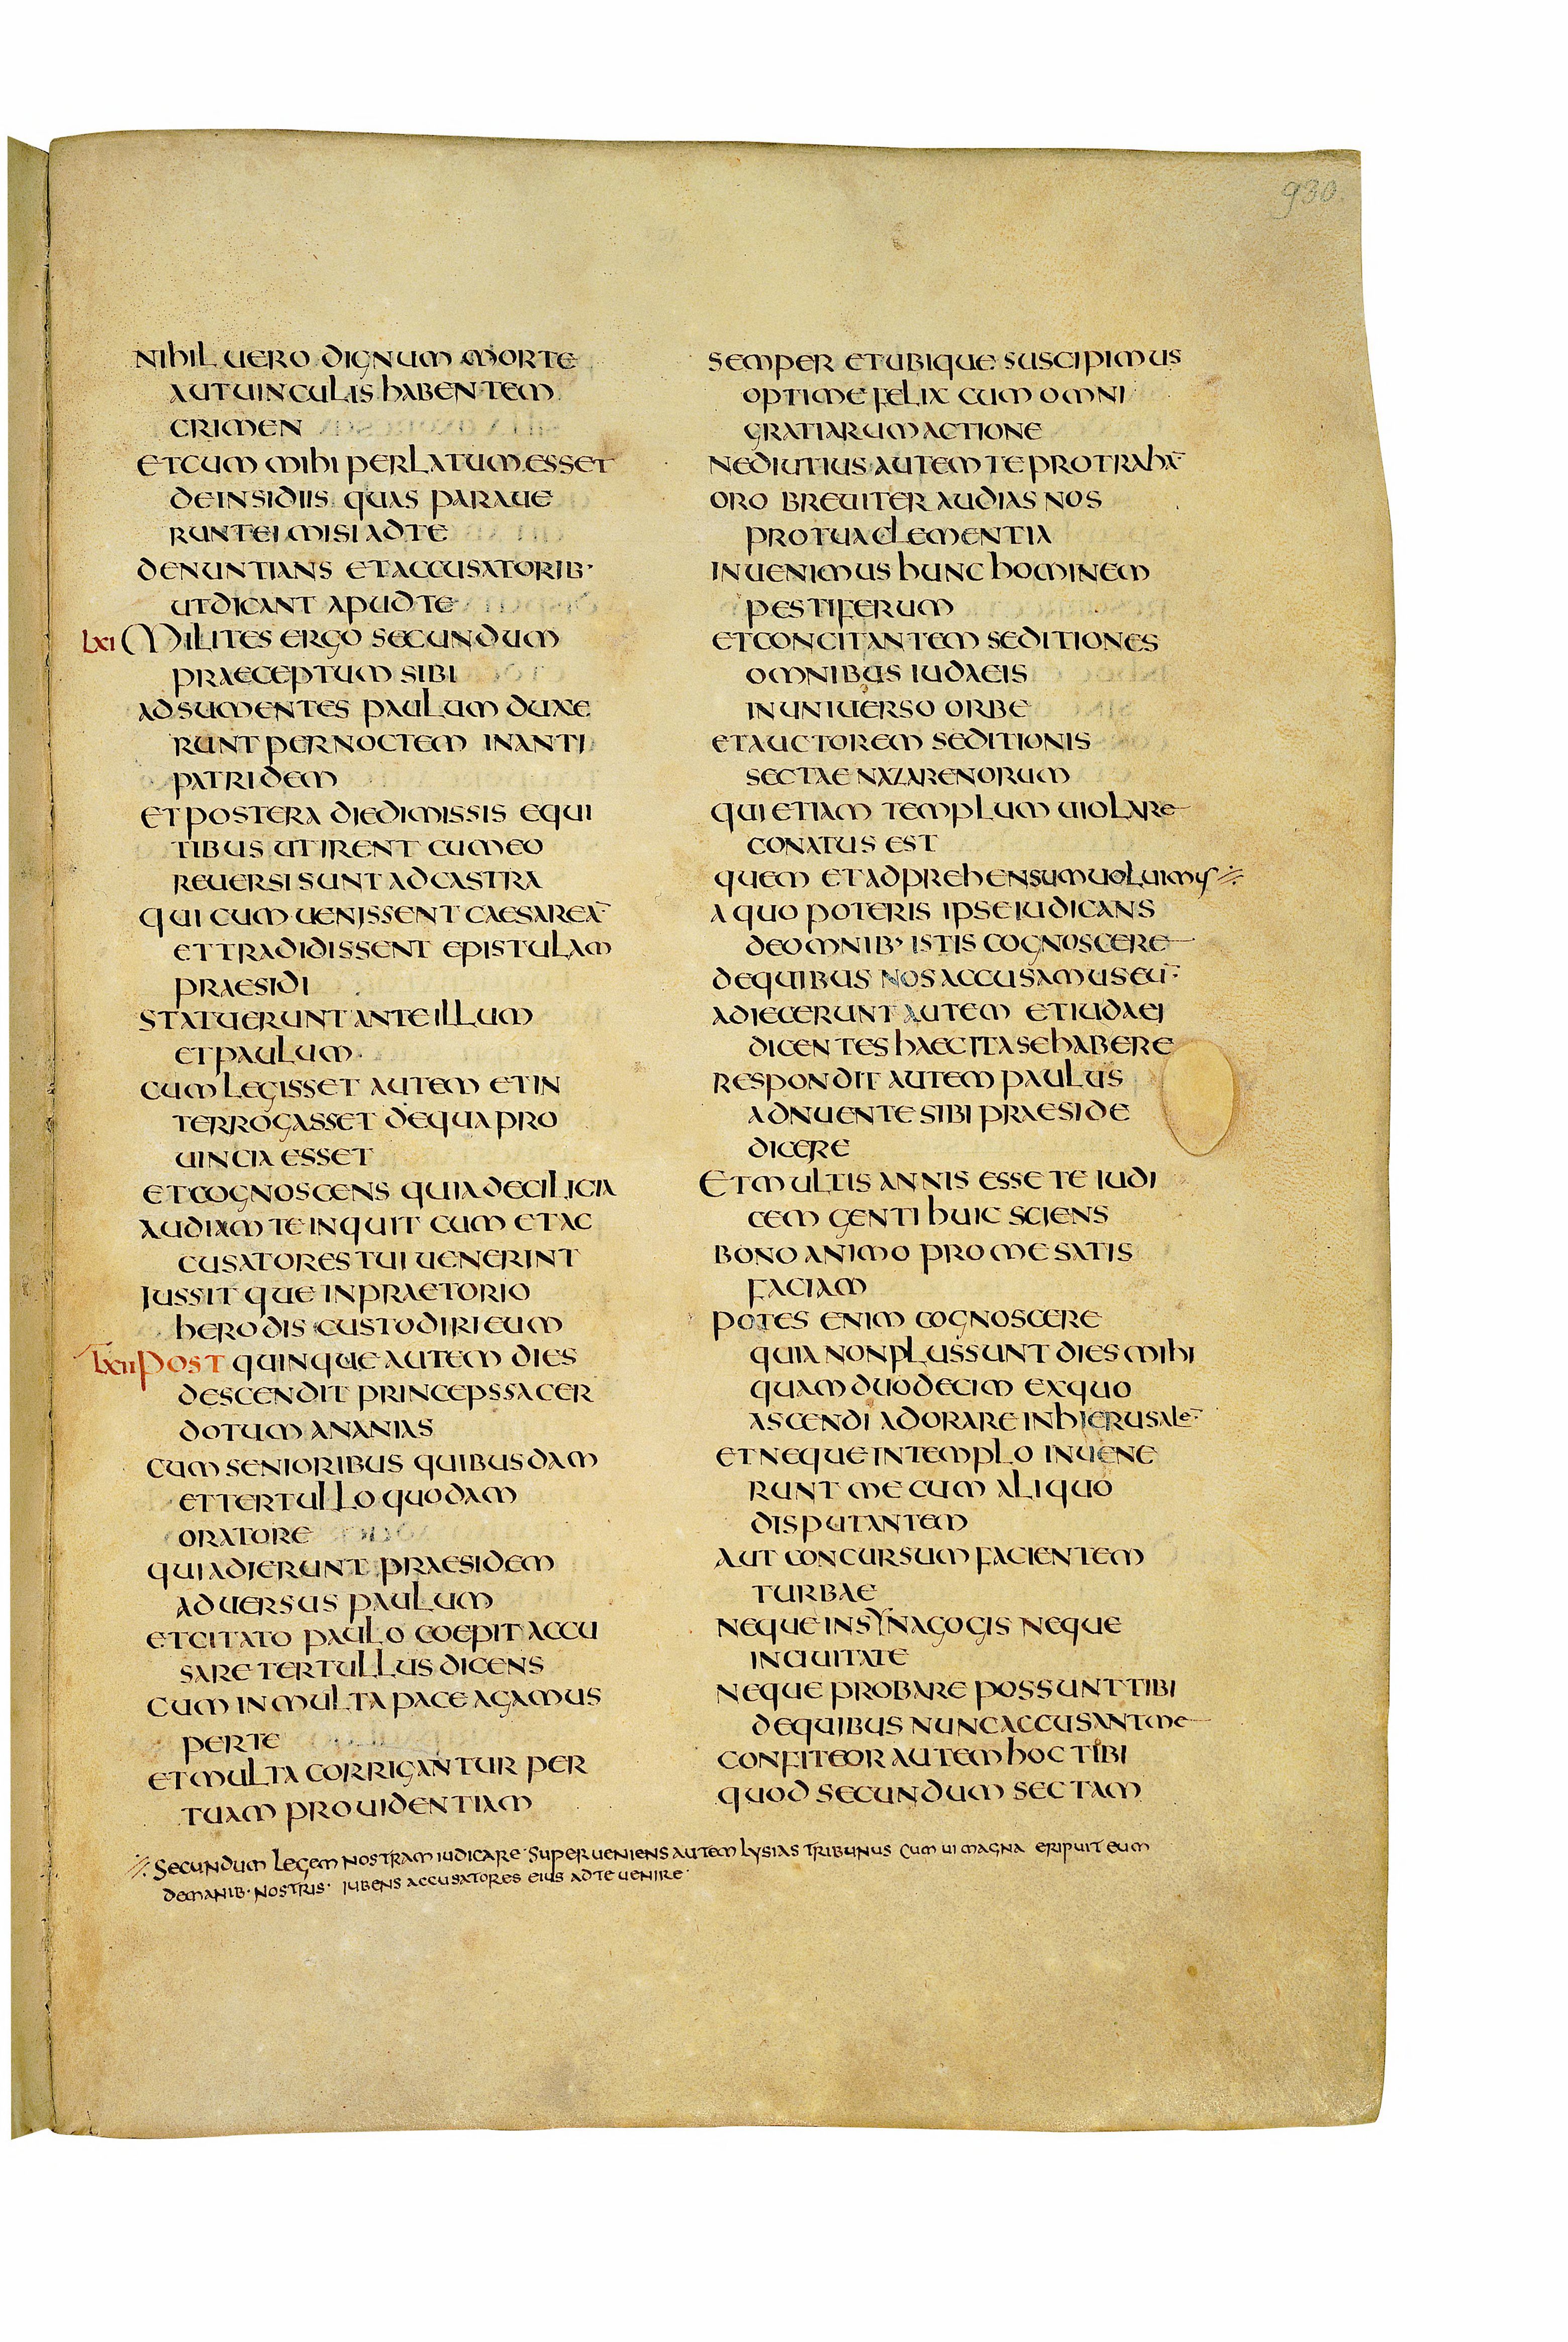 930.
NIHIL UERO DIGNUM MORTE
AUTUINCULIS HABENTEM
CRIMEN
ETCUM MIHI PERLATUM ESSET
DEINSIDIIS QUAS PARAUE
RUNTEI MISI ADTE
DENUNTIANS ETACCUSATORIB·
UTDICANT APUDTE
LXI MILITES ERGO SECUNDUM
PRAECEPTUM SIBI
ADSUMENTES PAULUM DUXE
RUNT PERNOCTEM INANTI
PATRIDEM
ETPOSTERA DIEDIMISSIS EQUI
TIBUS UTIRENT CUMEO
REUERSI SUNT ADCASTRA
QUI CUM UENISSENT CAESAREĀ
ETTRADIDISSENT EPISTULAM
PRAESIDI
STATUERUNT ANTE ILLUM
ETPAULUM
CUM LEGISSET AUTEM ETIN
TERROGASSET DEQUA PRO
UINCIA ESSET
ETCOGNOSCENS QUIA DECILICIA
AUDIAM TE INQUIT CUM ETAC
CUSATORES TUI UENERINT
IUSSITQUE INPRAETORIO
HERODIS CUSTODIRI EUM
LXII POST QUINQUE AUTEM DIES
DESCENDIT PRINCEPS SACER
DOTUM ANANIAS
CUM SENIORIBUS QUIBUSDAM
ETTERTULLO QUODAM
ORATORE
QUI ADIERUNT PRAESIDEM
ADUERSUS PAULUM
ETCITATO PAULO COEPIT ACCU
SARE TERTULLUS DICENS
CUM IN MULTA PACE AGAMUS
PERTE
ETMULTA CORRIGANTUR PER
TUAM PROUIDENTIAM
SEMPER ETUBIQUE SUSCIPIMUS
OPTIME FELIX CUM OMNI
GRATIARUM ACTIONE
NEDIUTIUS AUTEM TE PROTRAHĀ
ORO BREUITER AUDIAS NOS
PROTUA CLEMENTIA
INUENIMUS HUNC HOMINEM
PESTIFERUM
ETCONCITANTEM SEDITIONES
OMNIBUS IUDAEIS
INUNIUERSO ORBE
ETAUCTOREM SEDITIONIS
SECTAE NAZARENORUM
QUI ETIAM TEMPLUM UIOLARE
CONATUS EST
QUEM ETADPREHENSUM UOLUIMUS
A QUO POTERIS IPSE IUDICANS
DEOMNIB· ISTIS COGNOSCERE
DEQUIBUS NOS ACCUSAMUS EŪ
ADIECERUNT AUTEM ETIUDAEI
DICENTES HAEC ITA SE HABERE
RESPONDIT AUTEM PAULUS
ADNUENTE SIBI PRAESIDE
DICERE
ETMULTIS ANNIS ESSE TE IUDI
CEM GENTI HUIC SCIENS
BONO ANIMO PRO ME SATIS
FACIAM
POTES ENIM COGNOSCERE
QUIA NON PLUS SUNT DIES MIHI
QUAM DUODECIM EXQUO
ASCENDI ADORARE INHIERUSALĒ
ETNEQUE INTEMPLO INUENE
RUNT ME CUM ALIQUO
DISPUTANTEM
AUT CONCURSUM FACIENTEM
TURBAE
NEQUE INSYNAGOGIS NEQUE
INCIUITATE
NEQUE PROBARE POSSUNT TIBI
DEQUIBUS NUNC ACCUSANT ME
CONFITEOR AUTEM HOC TIBI
QUOD SECUNDUM SECTAM
SECUNDUM LEGEM NOSTRAM IUDICARE· SUPERUENIENS AUTEM LYSIAS TRIBUNUS CUM UI MAGNA ERIPUIT EUM
DEMANIB· NOSTRIS· IUBENS ACCUSATORES EIUS ADTE UENIRE·